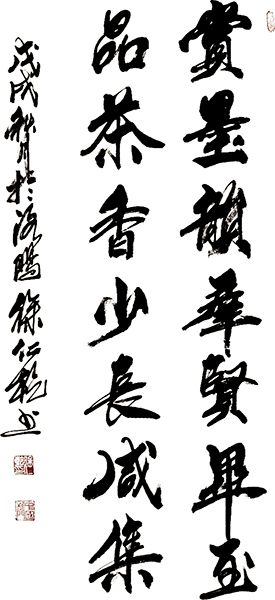 賞墨韻羣賢畢至
品茶香少長咸集
戊戌秋月於洛陽徐仁乾书